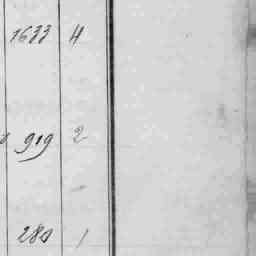 1633 4
919 2
280 1